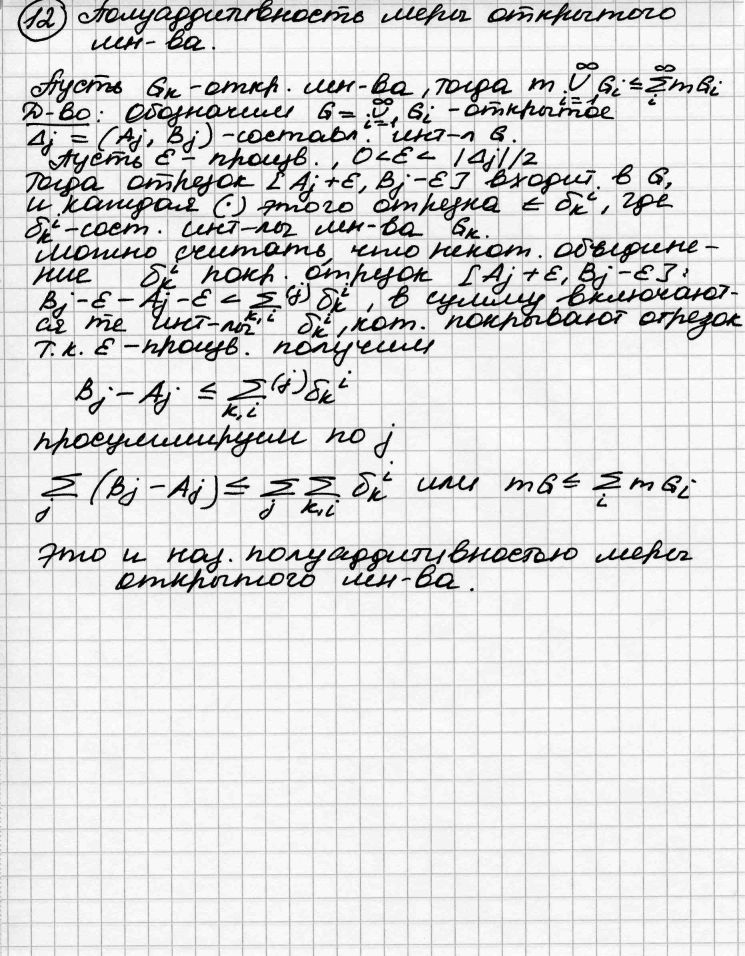 12 Полуаддитивность меры открытого
мн-ва.
Пусть Gₖ - откр. мн-ва, тогда m ∪_{i=1}^∞ Gᵢ ≤ ∑_i^∞ mGᵢ
Д-во: Обозначим G = ∪_{i=1}^∞ Gᵢ - открытое
Δⱼ = (Aⱼ, Bⱼ) - составл. инт-л G.
Пусть ε - произв., 0<ε< |Δⱼ|/2
Тогда отрезок [Aⱼ+ε, Bⱼ-ε] входит в G,
и каждая (·) этого отрезка ∈ δₖⁱ, где
δₖⁱ-сост. инт-лы мн-ва Gₖ.
Можно считать, что некот. объедине-
ние δₖⁱ покр. отрезок [Aⱼ+ε, Bⱼ-ε]:
Bⱼ-ε-Aⱼ-ε < ∑_{k,i}^{(j)} δₖⁱ, в сумму включают-
ся те инт-лы δₖⁱ, кот. покрывают отрезок
т.к. ε-произв. получим
Bⱼ - Aⱼ ≤ ∑_{k,i}^{(j)} δₖⁱ
просуммируем по j
∑_j (Bⱼ - Aⱼ) ≤ ∑_j ∑_{k,i} δₖⁱ или mG ≤ ∑_i mGᵢ
Это и наз. полуаддитивностью меры
открытого мн-ва.